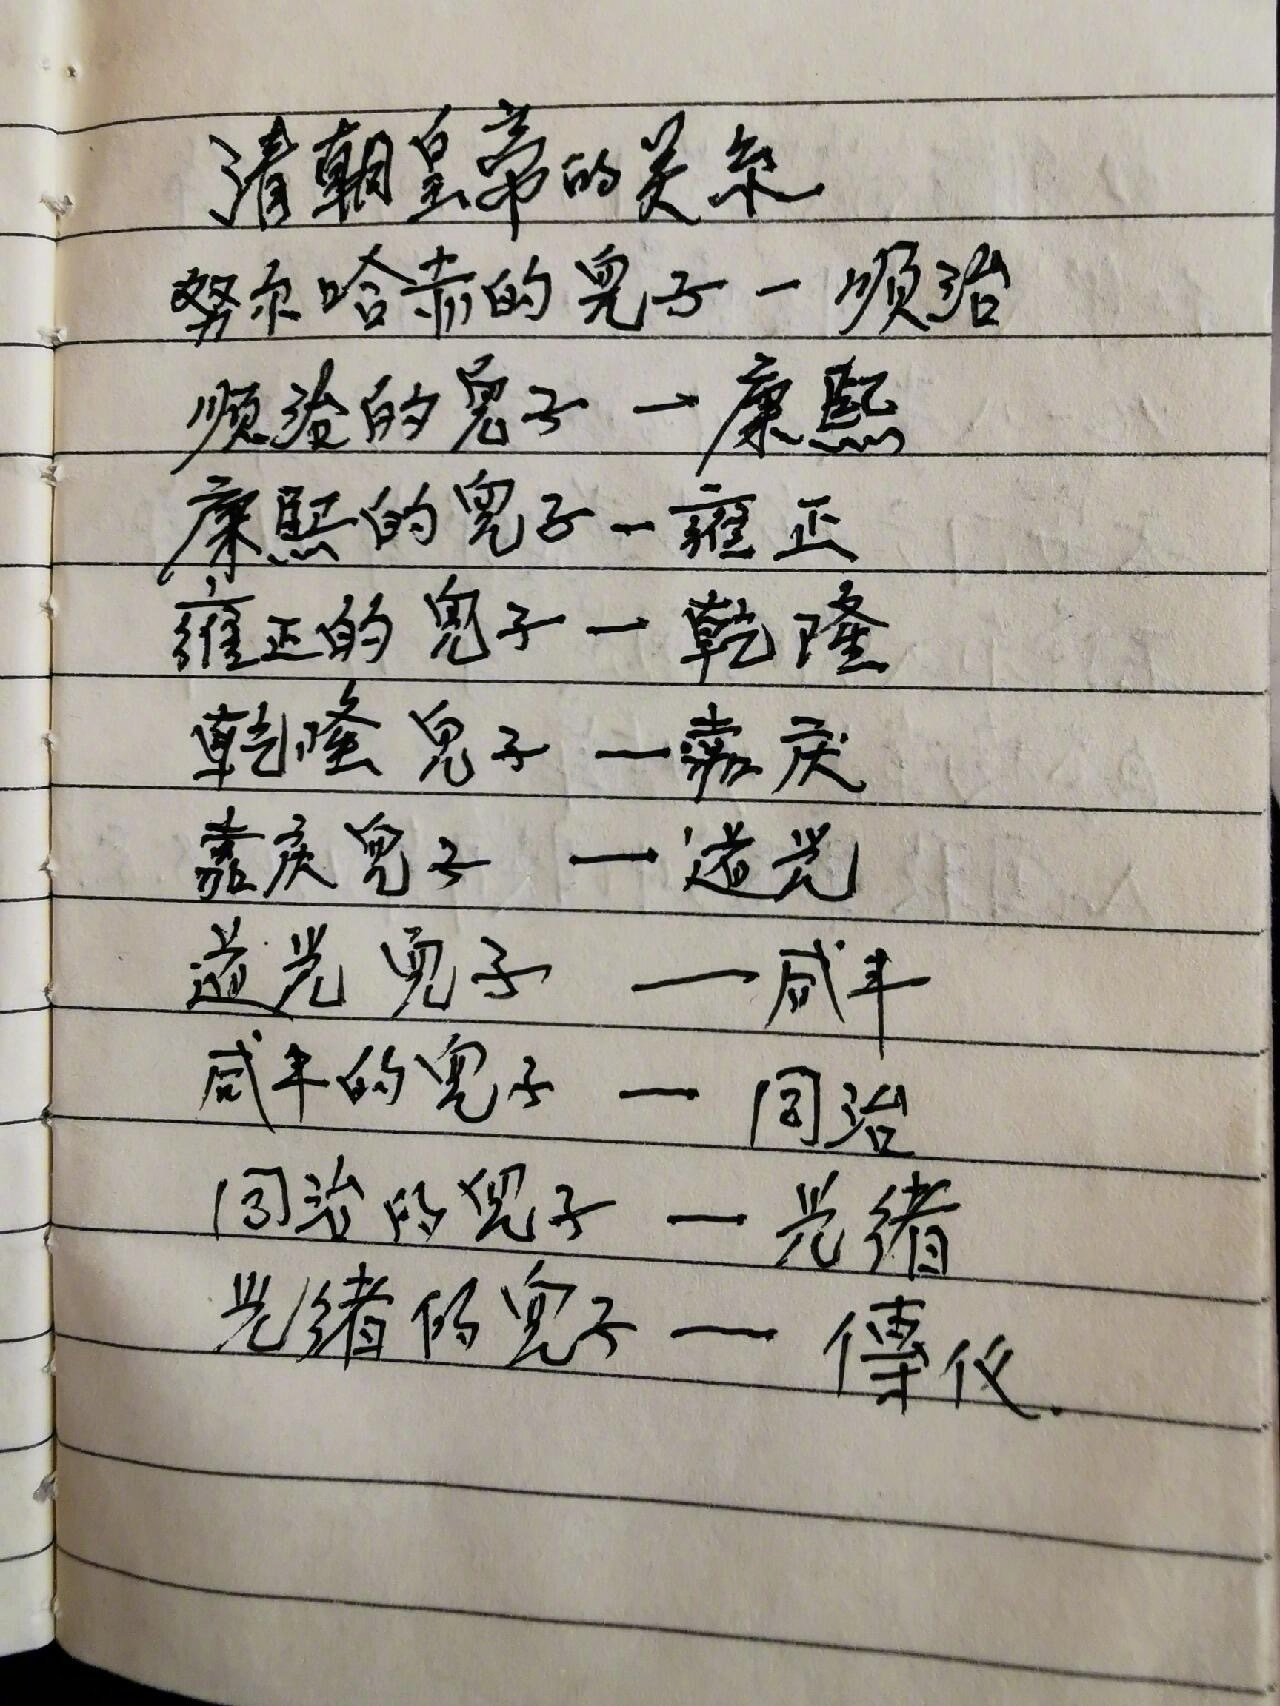 清朝皇帝的关系
努尔哈赤的兒子一顺治
顺治的兒子一康熙
康熙的兒子一雍正
雍正的兒子一乾隆
乾隆兒子一嘉庆
嘉庆兒子一道光
道光兒子一咸丰
咸丰的兒子一同治
同治的兒子一光绪
光绪的兒子一傅仪.